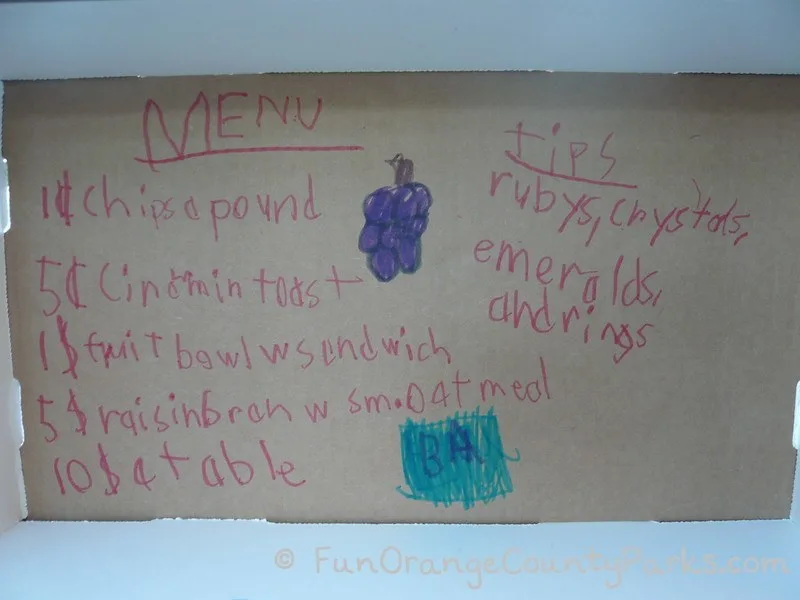 MENU
1¢ chips a pound
5¢ Cinamin toast
1$ fruit bowl w sandwich
5$ raisinbran w sm.oatmeal
10$ a table
tips
rubys, crystals,
emeralds,
and rings
BA
© FunOrangeCountyParks.com